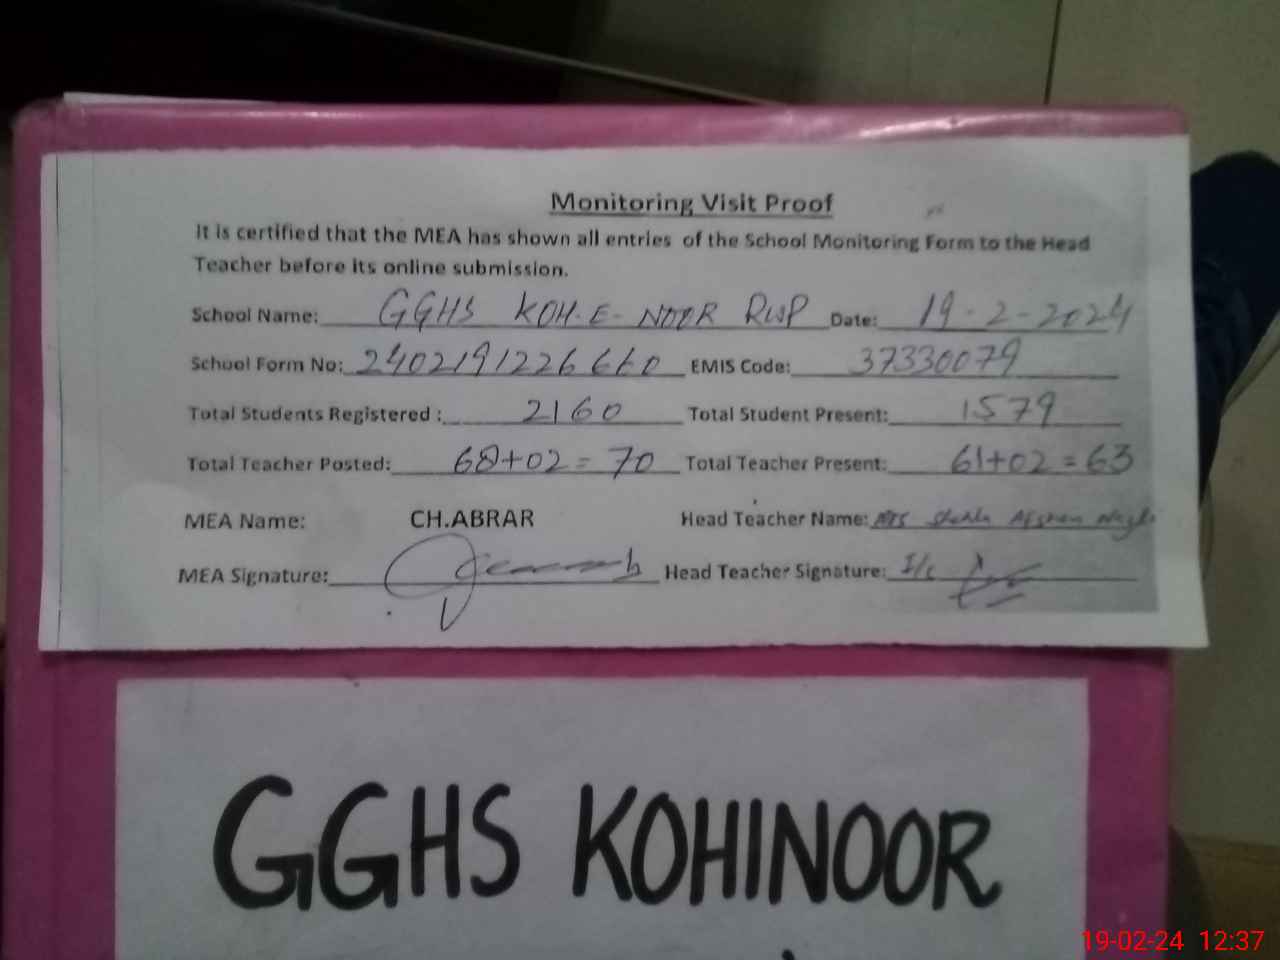 Monitoring Visit Proof
It is certified that the MEA has shown all entries of the School Monitoring Form to the Head
Teacher before its online submission.
School Name: GGHS KOH-E-NOOR RWP Date: 19-2-2024
School Form No: 2402191226660 EMIS Code: 37330079
Total Students Registered : 2160 Total Student Present: 1579
Total Teacher Posted: 68+02=70 Total Teacher Present: 61+02=63
MEA Name: CH.ABRAR Head Teacher Name: Mrs Afshan
MEA Signature: Head Teacher Signature: I/c
GGHS KOHINOOR
19-02-24 12:37